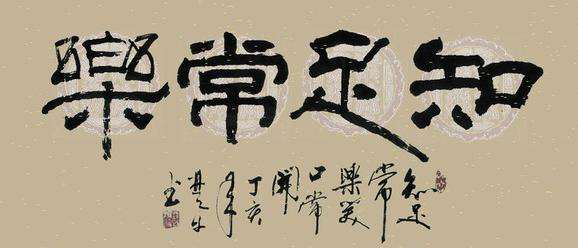 知足常樂
知足
常
樂笑
口常
開
丁亥
年